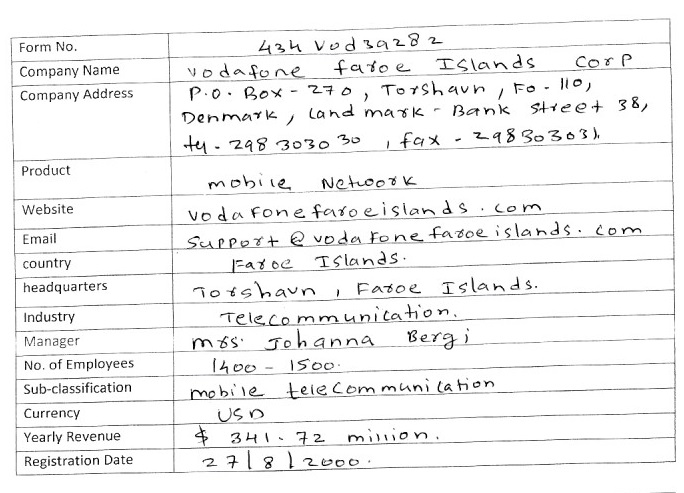 Form No. 434 Vod39282
Company Name vodafone faroe Islands Corp
Company Address P.O. Box - 270, Torshavn, Fo - 110,
Denmark, Land mark - Bank Street 38,
ty - 298 3030 30, fax - 298303031.
Product mobile Network
Website vodafonefaroeislands.com
Email Support@vodafonefaroeislands.com
country Faroe Islands.
headquarters Torshavn, Faroe Islands.
Industry Telecommunication.
Manager mrs. Johanna Bergi
No. of Employees 1400 - 1500.
Sub-classification mobile telecommunication
Currency USD
Yearly Revenue $ 341.72 million.
Registration Date 27/8/2000.